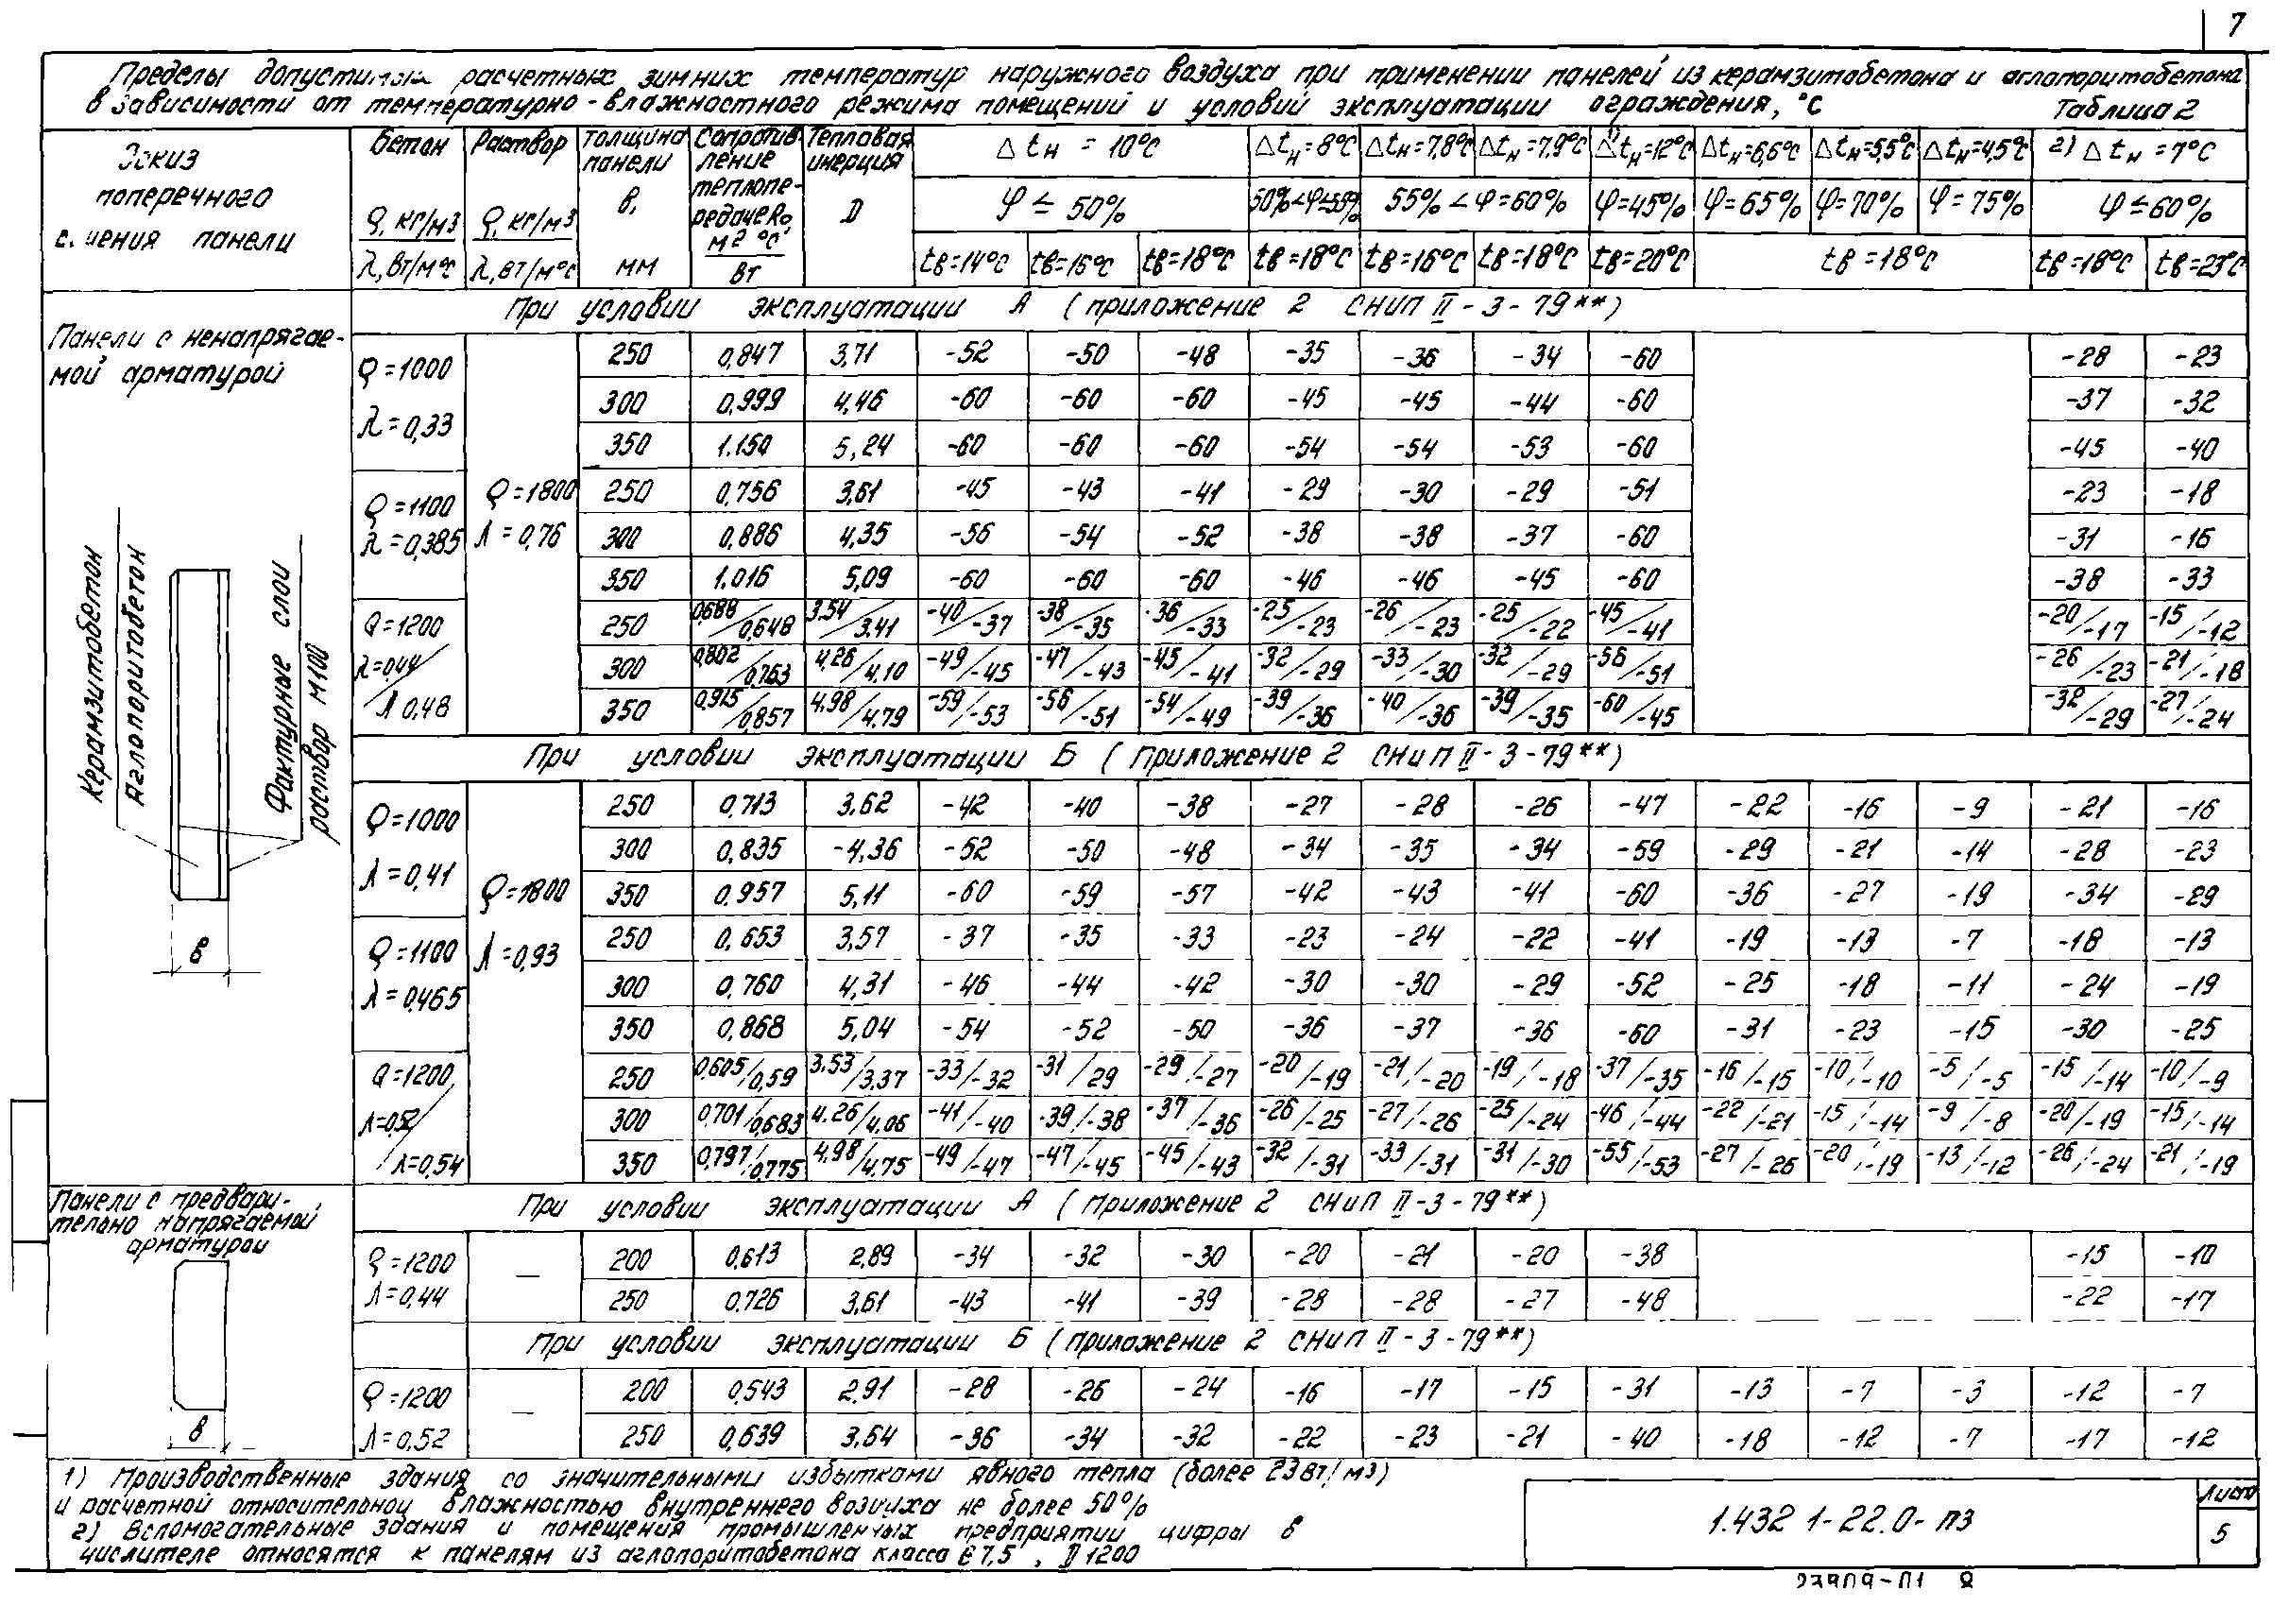 7
Пределы допустимых расчетных зимних температур наружного воздуха при применении панелей из керамзитобетона и аглопоритобетона
в зависимости от температурно-влажностного режима помещений и условий эксплуатации ограждения, °С Таблица 2
Эскиз поперечного с.чения панели
Бетон ϱ, кг/м3 λ, Вт/м°С
Раствор ϱ, кг/м3 λ, Вт/м°С
Толщина панели в, мм
Сопротивление теплопередаче Ro м2 °С Вт
Тепловая инерция D
Δtн = 10°С Δtн=8°С Δtн=7,8°С Δtн=7,9°С 1) Δtн=12°С Δtн=6,6°С Δtн=5,5°С Δtн=4,5°С 2) Δtн=7°С
φ ≤ 50% 55%<φ=60% φ=45% φ=65% φ=70% φ=75% φ≤60%
tв=14°С tв=16°С tв=18°С tв=18°С tв=16°С tв=18°С tв=20°С tв=18°С tв=18°С tв=23°С
При условии эксплуатации А (приложение 2 СНиП II-3-79**)
Панели с ненапрягаемой арматурой
Керамзитобетон
Аглопоритобетон
Фактурные слои
раствор М100
в
ϱ=1000 λ=0,33
ϱ=1800 λ=0,76
250 0,847 3,71 -52 -50 -48 -35 -36 -34 -60 -28 -23
300 0,999 4,46 -60 -60 -60 -45 -45 -44 -60 -37 -32
350 1.150 5,24 -60 -60 -60 -54 -54 -53 -60 -45 -40
ϱ=1100 λ=0,385
250 0,756 3,61 -45 -43 -41 -29 -30 -29 -51 -23 -18
300 0,886 4,35 -56 -54 -52 -38 -38 -37 -60 -31 -16
350 1.016 5,09 -60 -60 -60 -46 -46 -45 -60 -38 -33
ϱ=1200 λ=0,44/λ 0,48
250 0,688/0,648 3.54/3.41 -40/-37 -38/-35 -36/-33 -25/-23 -26/-23 -25/-22 -45/-41 -20/-17 -15/-12
300 0,802/0,763 4,26/4,10 -49/-45 -47/-43 -45/-41 -32/-29 -33/-30 -32/-29 -56/-51 -26/-23 -21/-18
350 0,915/0,857 4,98/4,79 -59/-53 -56/-51 -54/-49 -39/-36 -40/-36 -39/-35 -60/-45 -32/-29 -27/-24
При условии эксплуатации Б (Приложение 2 СНиП II-3-79**)
ϱ=1000 λ=0,41
ϱ=1800 λ=0,93
250 0,713 3,62 -42 -40 -38 -27 -28 -26 -47 -22 -16 -9 -21 -16
300 0,835 -4,36 -52 -50 -48 -34 -35 -34 -59 -29 -21 -14 -28 -23
350 0.957 5,11 -60 -59 -57 -42 -43 -41 -60 -36 -27 -19 -34 -29
ϱ=1100 λ=0,465
250 0,653 3,57 -37 -35 -33 -23 -24 -22 -41 -19 -13 -7 -18 -13
300 0,760 4,31 -46 -44 -42 -30 -30 -29 -52 -25 -18 -11 -24 -19
350 0,868 5,04 -54 -52 -50 -36 -37 -36 -60 -31 -23 -15 -30 -25
ϱ=1200 λ=0,52/λ=0,54
250 0,605/0,59 3.53/3,37 -33/-32 -31/29 -29/-27 -20/-19 -21/-20 -19/-18 -37/-35 -16/-15 -10/-10 -5/-5 -15/-14 -10/-9
300 0,701/0,683 4.26/4.06 -41/-40 -39/-38 -37/-36 -26/-25 -27/-26 -25/-24 -46/-44 -22/-21 -15/-14 -9/-8 -20/-19 -15/-14
350 0,797/0,775 4,98/4.75 -49/-47 -47/-45 -45/-43 -32/-31 -33/-31 -31/-30 -55/-53 -27/-26 -20/-19 -13/-12 -26/-24 -21/-19
Панели с предварительно напрягаемой арматурой
При условии эксплуатации А (Приложение 2 СНиП II-3-79**)
ϱ=1200 λ=0,44 —
200 0,613 2,89 -34 -32 -30 -20 -21 -20 -38 -15 -10
250 0.726 3,61 -43 -41 -39 -28 -28 -27 -48 -22 -17
При условии эксплуатации Б (Приложение 2 СНиП II-3-79**)
в
ϱ=1200 λ=0,52 —
200 0,543 2,91 -28 -26 -24 -16 -17 -15 -31 -13 -7 -3 -12 -7
250 0,639 3,64 -36 -34 -32 -22 -23 -21 -40 -18 -12 -7 -17 -12
1) Производственные здания со значительными избытками явного тепла (более 23 Вт/м3)
и расчетной относительной влажностью внутреннего воздуха не более 50%
2) Вспомогательные здания и помещения промышленных предприятий цифры в
числителе относятся к панелям из аглопоритобетона класса В 7,5, D 1200
1.432 1-22.0-ПЗ
Лист
5
23909-01 8